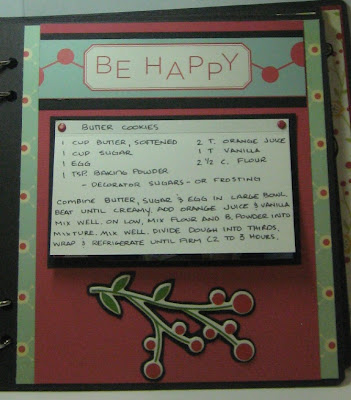 BE HAPPY
BUTTER COOKIES
1 CUP BUTTER, SOFTENED 2 T. ORANGE JUICE
1 CUP SUGAR 1 T VANILLA
1 EGG 2 1/2 C. FLOUR
1 TSP. BAKING POWDER
- DECORATOR SUGARS - OR FROSTING
COMBINE BUTTER, SUGAR & EGG IN LARGE BOWL
BEAT UNTIL CREAMY. ADD ORANGE JUICE & VANILLA
MIX WELL. ON LOW, MIX FLOUR AND B. POWDER INTO
MIXTURE. MIX WELL. DIVIDE DOUGH INTO THIRDS.
WRAP & REFRIGERATE UNTIL FIRM (2 TO 3 HOURS.